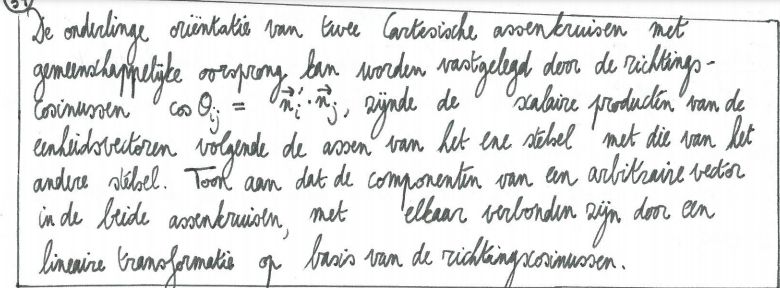 De onderlinge oriëntatie van twee Cartesische assenkruisen met
gemeenschappelijke oorsprong kan worden vastgelegd door de richtings-
cosinussen cos θij = n⃗i'·n⃗j, zijnde de scalaire producten van de
eenheidsvectoren volgende de assen van het ene stelsel met die van het
andere stelsel. Toon aan dat de componenten van een arbitraire vector
in de beide assenkruisen, met elkaar verbonden zijn door een
lineaire transformatie op basis van de richtingscosinussen.